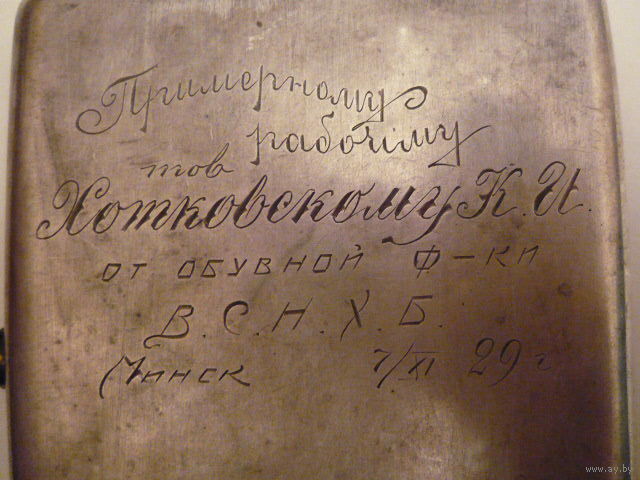 Примерному
рабочіму
тов
Хотковскому К. И.
от обувной ф-ки
В. С. Н. Х. Б.
Минск 7/XI 29 г
www.ay.by